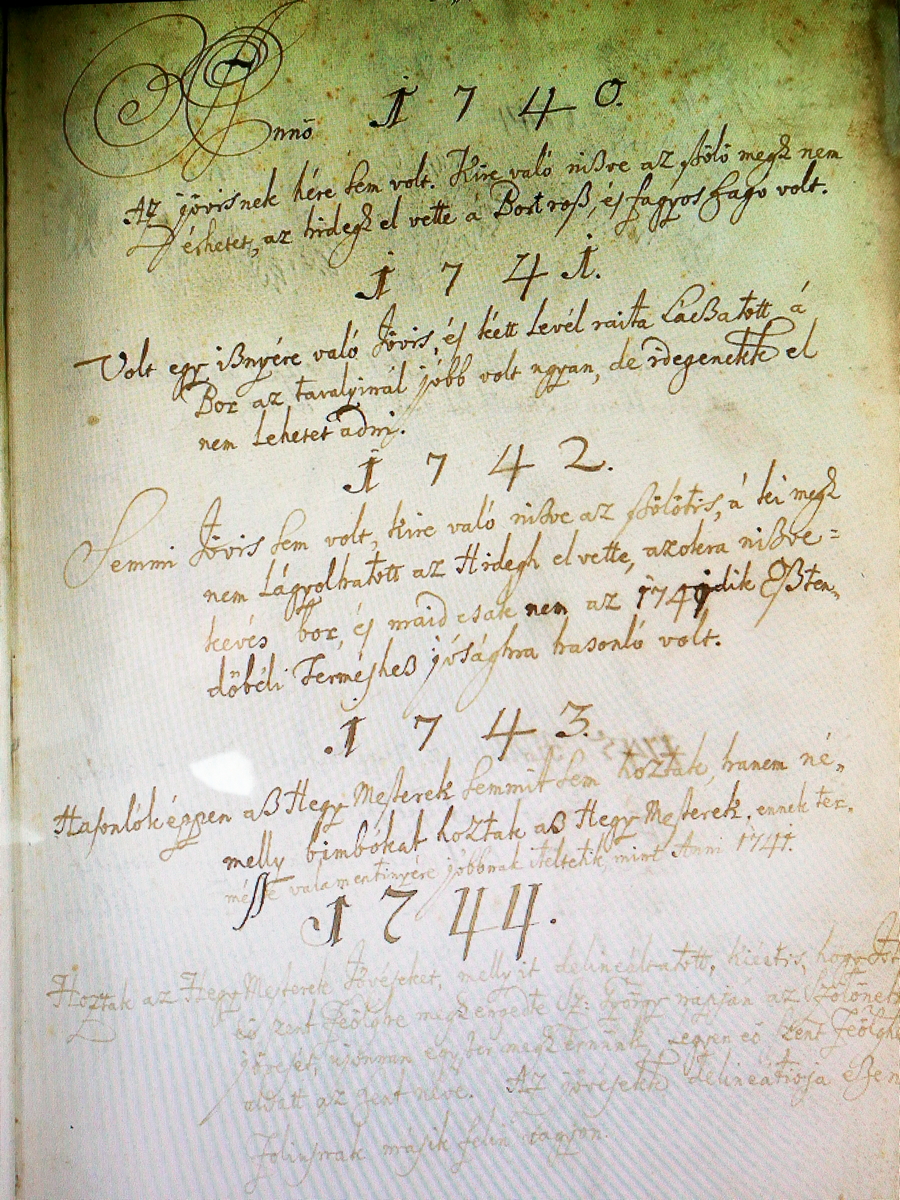 Annō 1740.
Az jövisnek hére sem volt. Kire való nißve az ßőlő megh nem
érhetet, az hidegh el vette á Bort roß, és fagyos fago volt.
1741.
Volt egy ißnyére való Jövis, és kett Levél raita Láctzatott á
Bor az tavalyinál jóbb volt ugyan, de idegenekk el
nem Lehetet adni.
1742.
Semmi Jövis sem volt, kire való nißve az ßőlőtis, á ki megh
nem Lágyolhatott az Hidegh el vette, azokra nißve=
kevés bor, és maid csak nem az 1741dik Eßten„
dőbéli Terméshez jósághra hasonló volt.
1743.
Hasonlóképpen aß Hegy Mesterek semmit sem hoztak, hanem né„
melly bimbókat hoztak aß Hegy Mesterek, ennek ter„
valamentinyére jobbnak iteltetik, mint Anni 1741.
1744.
Hoztak az Hegy Mesterek Jövéseket, mellyit delineáltatott, hogy
szent Feőlgre megh engedte Sz: György napján az Szőlőnek
szent
áldatt az zent neve. Az jövésekk delineátiója
Foliusnak másik felin vagyon.